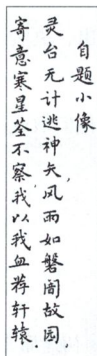 自题小像
灵台无计逃神矢,风雨如磐闇故园,
寄意寒星荃不察,我以我血荐轩辕.